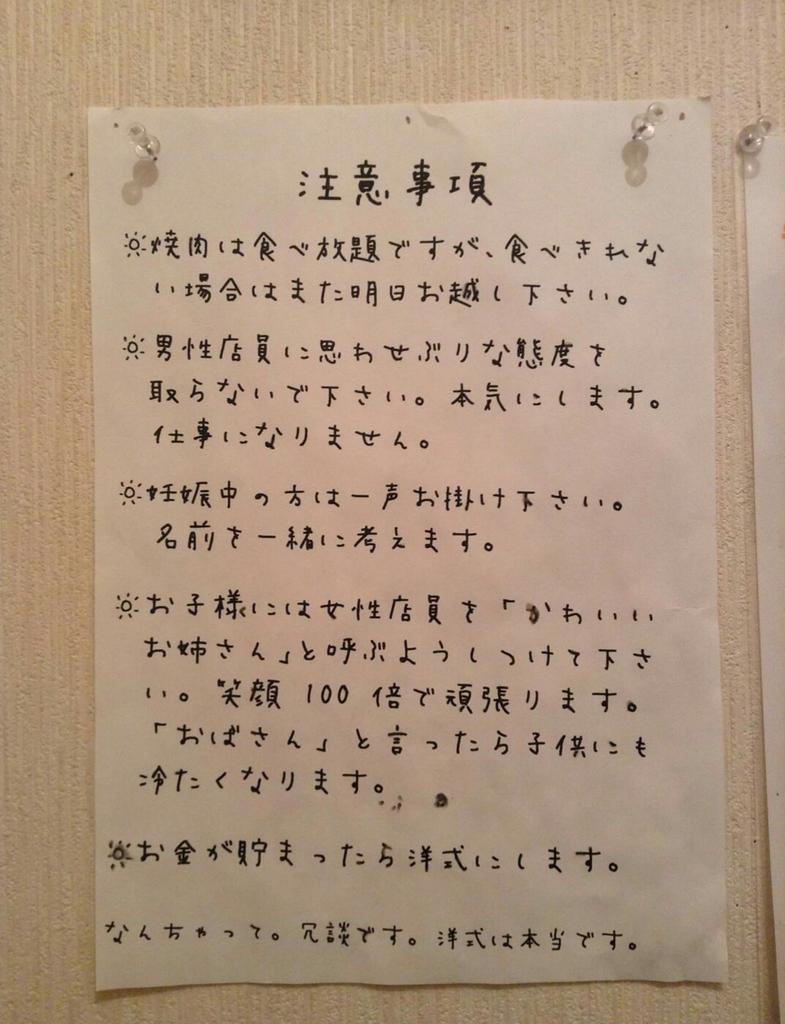 注意事項
☼焼肉は食べ放題ですが、食べきれな
い場合はまた明日お越し下さい。
☼男性店員に思わせぶりな態度を
取らないで下さい。本気にします。
仕事になりません。
☼妊娠中の方は一声お掛け下さい。
名前を一緒に考えます。
☼お子様には女性店員を「かわいい
お姉さん」と呼ぶようしつけて下さ
い。笑顔100倍で頑張ります。
「おばさん」と言ったら子供にも
冷たくなります。
☼お金が貯まったら洋式にします。
なんちゃって。冗談です。洋式は本当です。